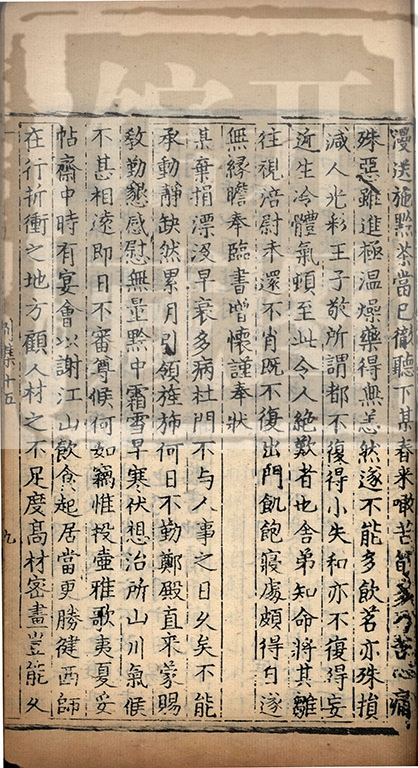 漫送施黔茶當已徹聽下某春来啖苦筍多乃苦心痛
殊惡雖進極温燥藥得無恙然遂不能多飲茗亦殊損
減人光彩王子敬所謂都不復得小失和亦不復得妄
近生冷體氣頓至此令人絶歎者也舍弟知命將其雛
往視涪尉未還不肖既不復出門飢飽寢處頗得自遂
無緣瞻奉臨書增懷謹奉狀
某棄捐漂没早衰多病杜門不与人事之日久矣不能
承動静缺然累月引領旌斾何日不勤鄭殿直来蒙賜
敎勤懇感慰無量黔中霜雪早寒伏想治所山川氣候
不甚相逺即日不審尊候何如竊惟投壷雅歌夷夏妥
帖齋中時有宴會以謝江山飲食起居當更勝健西師
在行折衝之地方顧人材之不足度髙材密畫豈能久
別集十五
九